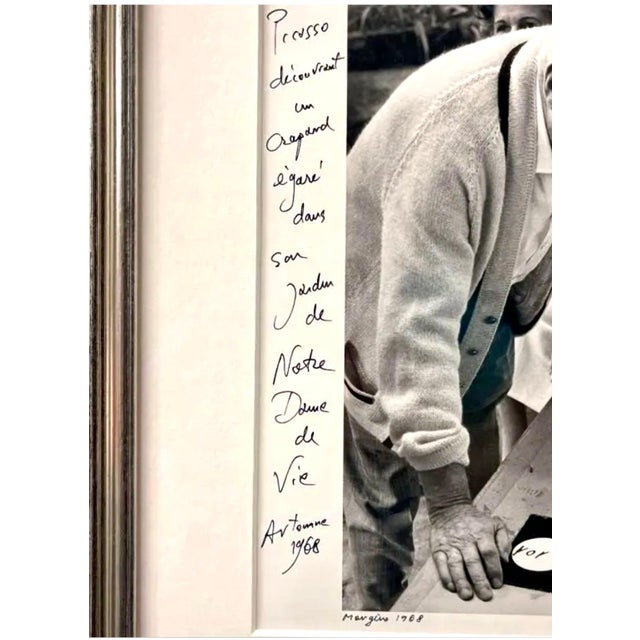 Picasso
découvrant
un
crapaud
égaré
dans
son
jardin
de
Notre
Dame
de
Vie
Automne
1968
Mougins 1968